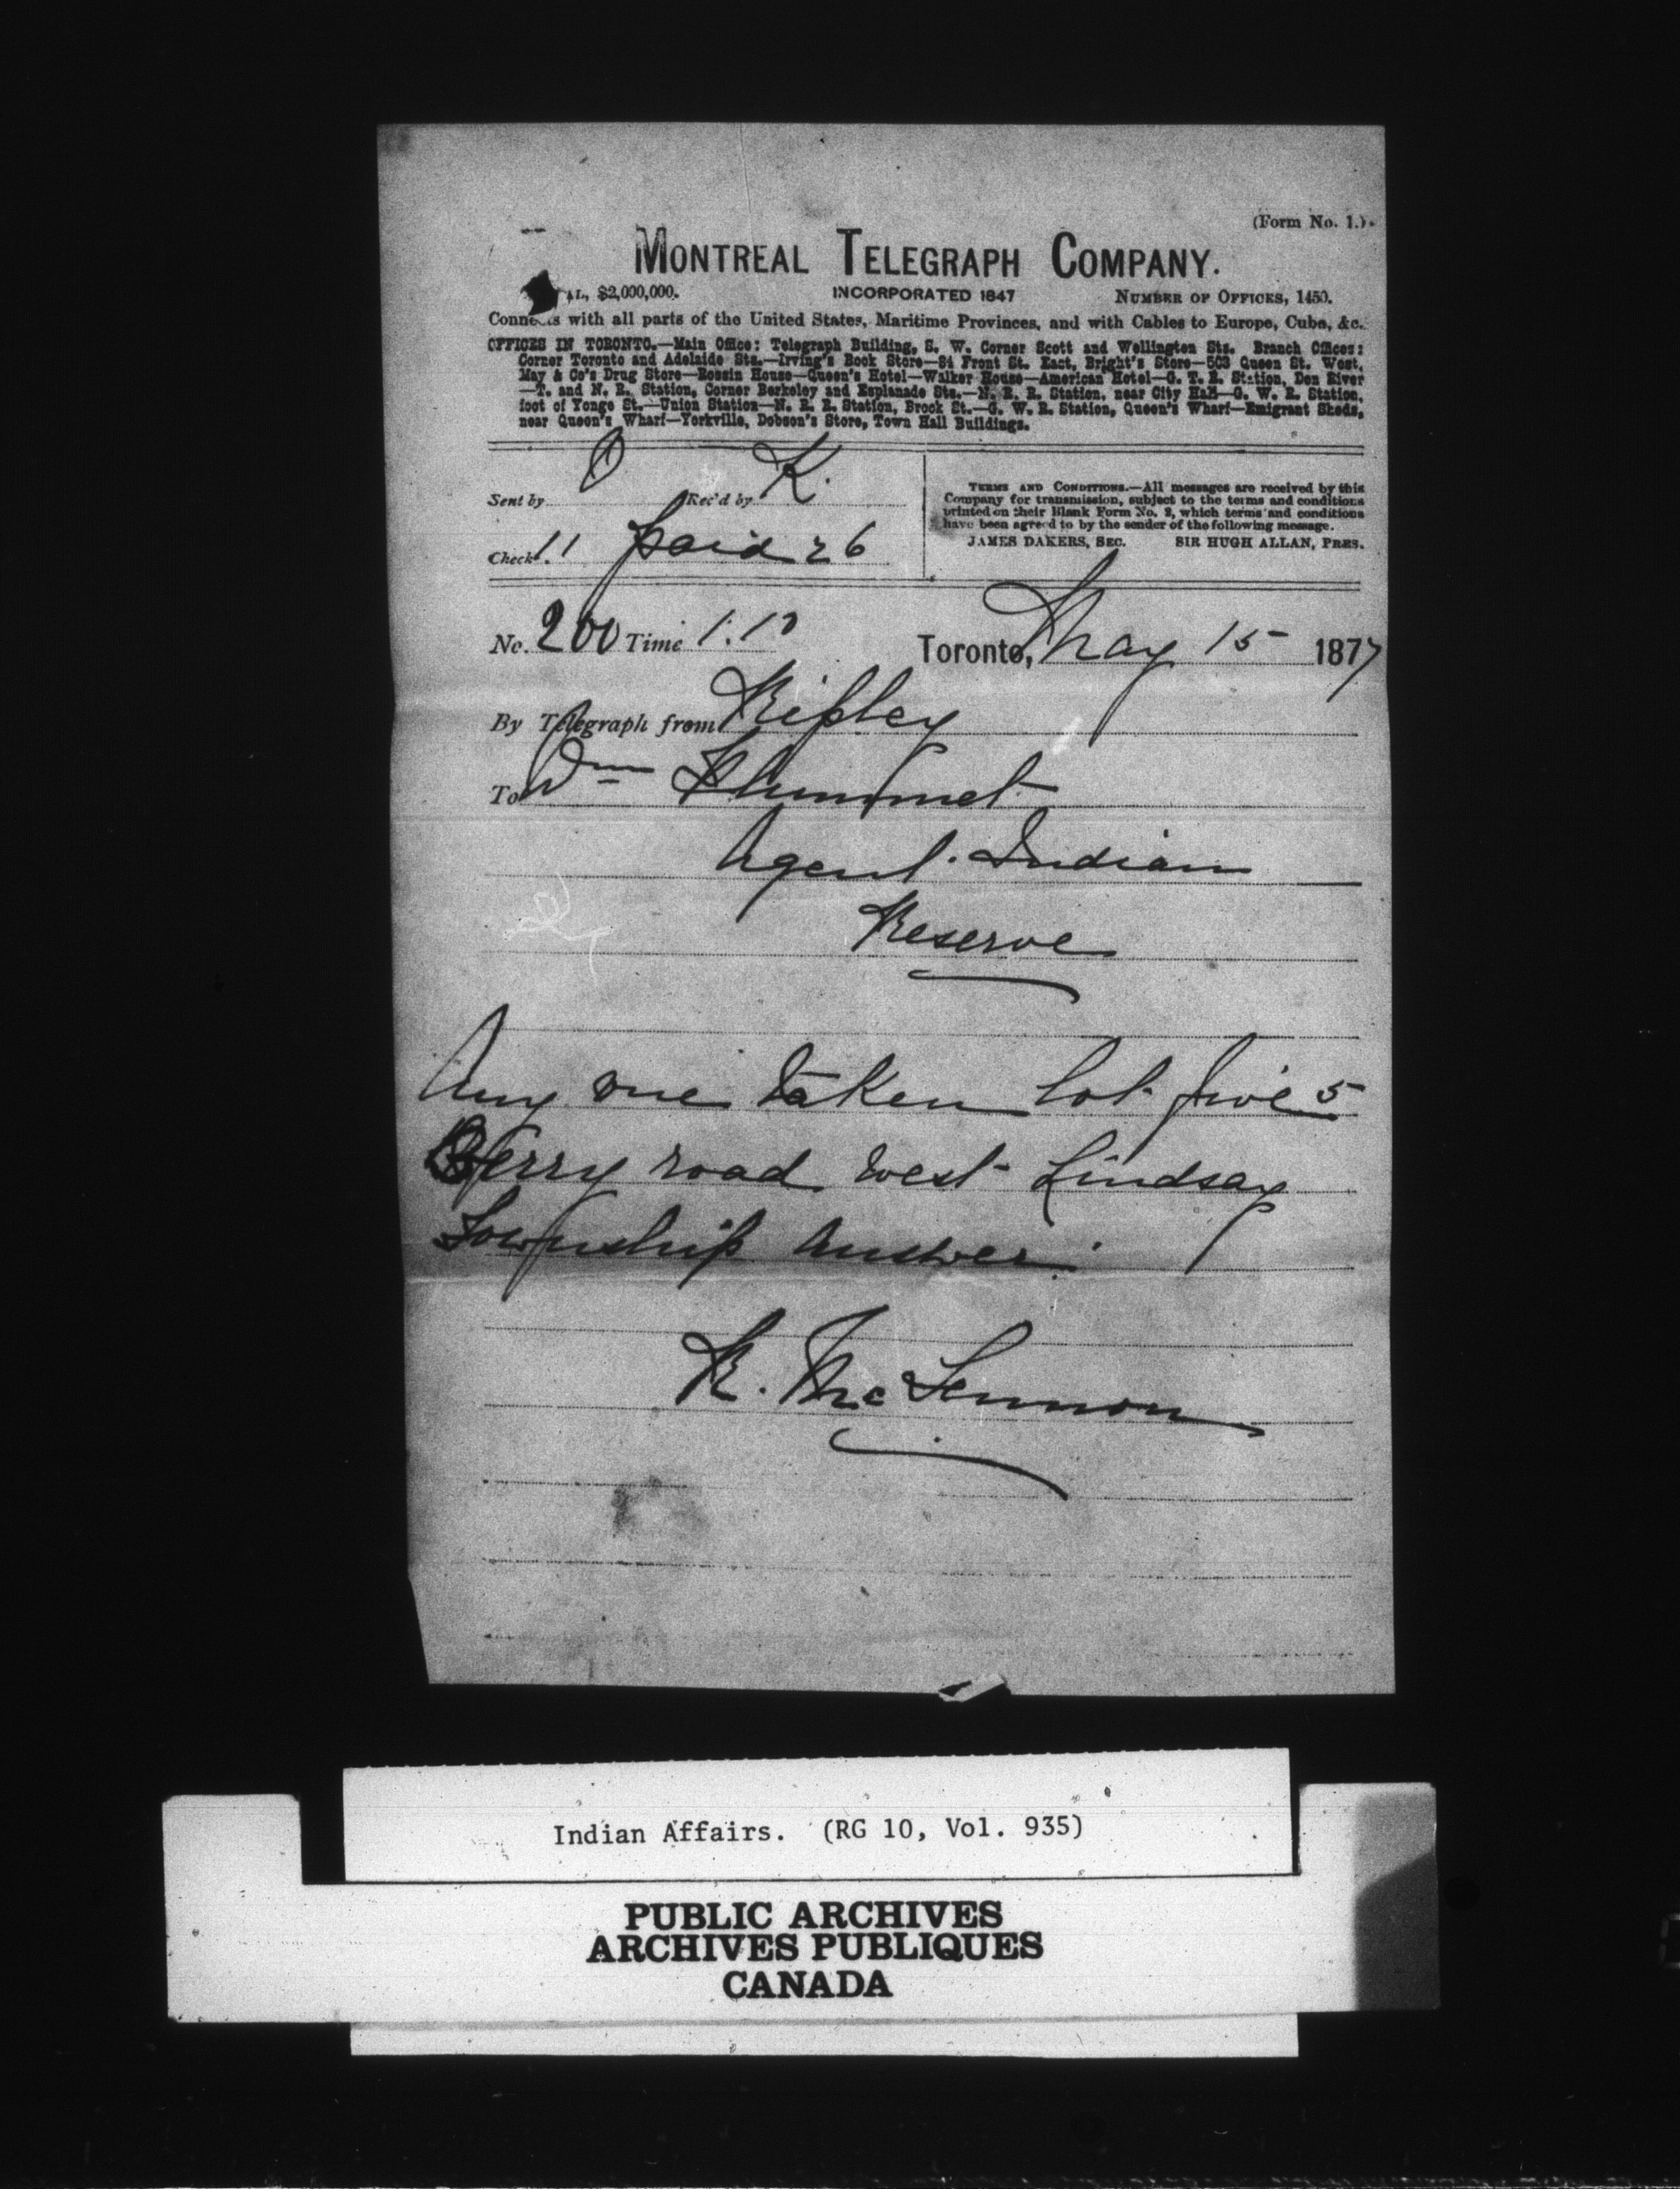 (Form No. 1.)
MONTREAL TELEGRAPH COMPANY.
AL, $2,000,000. INCORPORATED 1847 NUMBER OF OFFICES, 1450.
Connects with all parts of the United States, Maritime Provinces, and with Cables to Europe, Cuba, &c.
OFFICES IN TORONTO.—Main Office: Telegraph Building, S. W. Corner Scott and Wellington Sts. Branch Offices:
Corner Toronto and Adelaide Sts.—Irving's Book Store—84 Front St. East, Bright's Store—503 Queen St. West,
May & Co's Drug Store—Rossin House—Queen's Hotel—Walker House—American Hotel—G. T. R. Station, Don River
—T. and N. R. Station, Corner Berkeley and Esplanade Sts.—N. R. R. Station, near City Hall—G. W. R. Station,
foot of Yonge St.—Union Station—N. R. R. Station, Brock St.—G. W. R. Station, Queen's Wharf—Emigrant Sheds,
near Queen's Wharf—Yorkville, Dobson's Store, Town Hall Buildings.
Sent by O Rec'd by K.
Check 11 paid 26
TERMS AND CONDITIONS.—All messages are received by this
Company for transmission, subject to the terms and conditions
printed on their Blank Form No. 2, which terms and conditions
have been agreed to by the sender of the following message.
JAMES DAKERS, SEC. SIR HUGH ALLAN, PRES.
No. 200 Time 1:10 Toronto, May 15 1877
By Telegraph from Ripley
To Wm Plummet
Agent Indian
Reserve
Any one taken lot five 5
Berry road west Lindsay
Township Answer
R. McLennon
Indian Affairs. (RG 10, Vol. 935)
PUBLIC ARCHIVES
ARCHIVES PUBLIQUES
CANADA